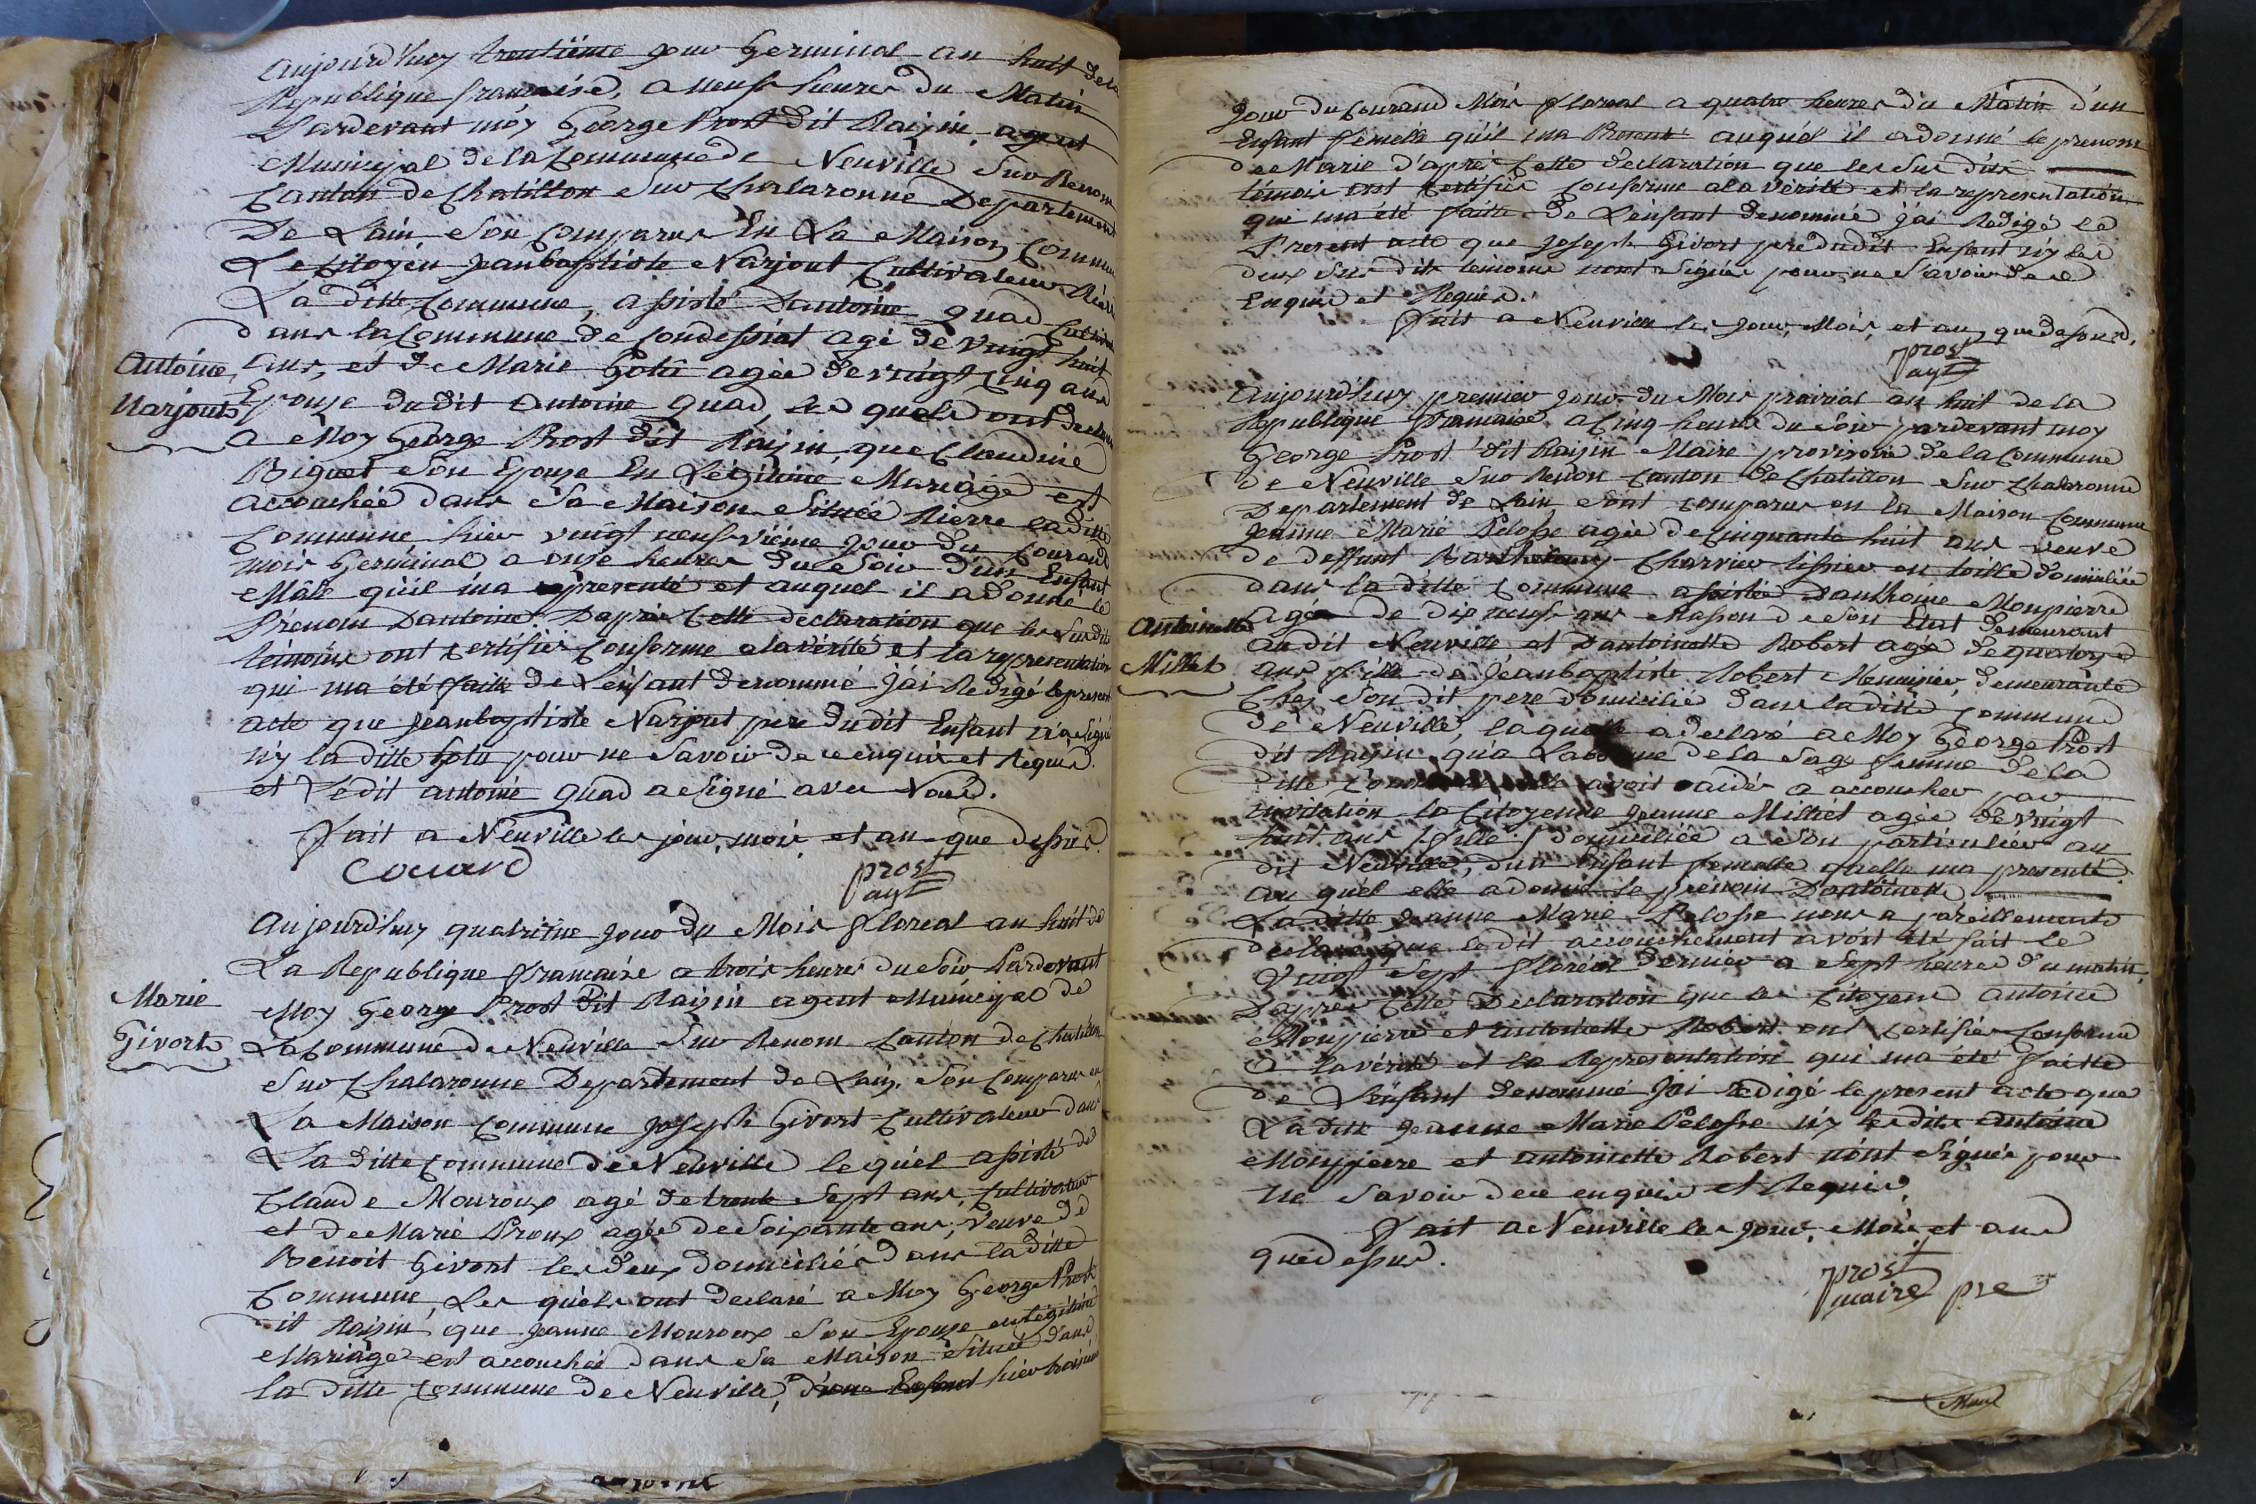 Aujourd'huy trentiême jour Germinal an huit de la
Republique francaise, a neuf heures du Matin
Pardevant moy George Prost dit Raisin agent
Municipal de la Commune de Neuville Sur Renom
Canton de Chatillon Sur Chalaronne Departement
De Lain Son Comparus En La Maison Commune
Le Citoyen Jeanbaptiste Narjout Cultivateur
La ditte Commune, assisté Dantoine quad Cultivat
dans la Commune de Condessiat agé de vingt huit
ans, et de Marie Golu agée de vingt cinq ans
Antoine
Narjout
Epouze du dit Antoine quad, les quels ont declaré
a Moy George Prost dit Raisin que Claudine
Biguet Son Epouze En Légitime Mariage est
accouchée dans Sa Maison Située Rierre la ditte
Commune hier vingt neufvième jour du Courand
mois Germinal a onze heures du Soir d'un Enfant
Mâle qu'il ma presenté et auquel il a donné le
Prénom Dantoine. Daprès Cette declaration que les Susdits
témoins ont certifiér Conforme a la vérité et la representation
qui ma été faitte de L'enfant denommé j'ai Rédigé le present
acte que Jeanbaptiste Narjout pere dudit Enfant n'a Signé
n'y la ditte Golu pour ne Savoir de ce enquis et Requis.
et Ledit antoine quad a Signé avec Nous.
Fait a Neuville les jour, mois, et an que dessus.
Couard
prost
agt
Aujourd'huy quatrième jour du Mois floreal an huit de
La Republique francaise a trois heures du Soir Pardevant
Marie
Givort
Moy George Prost dit Raisin agent Municipal de
La Commune de Neuville Sur Renom Canton de Chatillon
Sur Chalaronne Departement de Lain, Son Comparus en
La Maison Commune Joseph Givort Cultivateur dans
La ditte Commune de Neuville lequel assisté de
Claude Mouroux agé de trente Sept ans, Cultivateur
et de Marie Proux agée de Soixante ans, Veuve de
Benoit Givort les deux domiciliés dans la ditte
Commune, Les quels ont declaré a Moy George Prost
dit Raisin que Jeanne Mouroux Son Epouze en légitime
Mariage est accouchée dans Sa Maison Située dans
la ditte Commune de Neuville, d'une Enfant hier troisième
Jour du Courand Mois floreal a quatre heures du Matin d'un
Enfant femelle qu'il ma Presenté auquel il a donné le prenom
de Marie d'aprés Cette declaration que les Sus dits
témois ont Certifiér Conforme a la vérité et la representation
qui ma été faitte de L'enfant denommé j'ai Redigé le
Present acte que Joseph Givort pere dudit Enfant n'y les
deux Sus dits temoins nont Signés pour ne Savoir de ce
Enquis et Requis.
Fait a Neuville les jour, Mois, et an, que dessus.
prost
agt
Aujourd'huy premier jour du Mois prairial an huit de la
Republique francaise a Cinq heures du Soir pardevant moy
George Prost dit Raisin Maire provisoire de la Commune
de Neuville Sur Renon Canton de Chatillon Sur Chalaronne
Departement de Lain, Sont comparus en la Maison Commune
Jeanne Marie Pelosse agée de Cinquante huit ans veuve
de deffunt Barthelemy Charvier tissier en toille domiciliée
dans la ditte Commune assistée Danthoine Monpierre
agée de dix neuf ans Masson de Son Etat demeurant
Antoinette
Millet
audit Neuville et Dantoinette Robert agé de quatorze
ans fille de Jeanbaptiste Robert Menuisier, demeurante
Chez Son dit pere domicilié dans laditte Commune
de Neuville, laquelle a declaré a Moy George Prost
dit Raisin qu'a Labsence de la Sage femme de la
ditte avoit aidér a accoucher par
invitation la Citoyenne Jeanne Milliet agée de vingt
huit ans (fille) domiciliée a Son particuliér au
dit Neuville, d'un Enfant femelle quelle ma presenté
au quel elle a donné le prenom Dantoinette
La ditte Jeanne Marie Pelosse nous a pareillement
declaré que ledit accouchement avoit été fait le
Vingt Sept floréal dernier a Sept heures du matin,
Dapres Cette Declaration que les Citoyens antoine
Monpierre et antoinette Robert ont certifiér Conforme
a la vérité et la Representation qui ma été faitte
de L'enfant denommé Jai Rédigé le present acte que
La ditte Jeanne Marie Pelosse n'y lesdits antoine
Monpierre et antoinette Robert nont Signés pour
ne Savoir de ce enquis et Requis.
Fait a Neuville les jour, Mois, et an
que dessus.
prost
maire pre